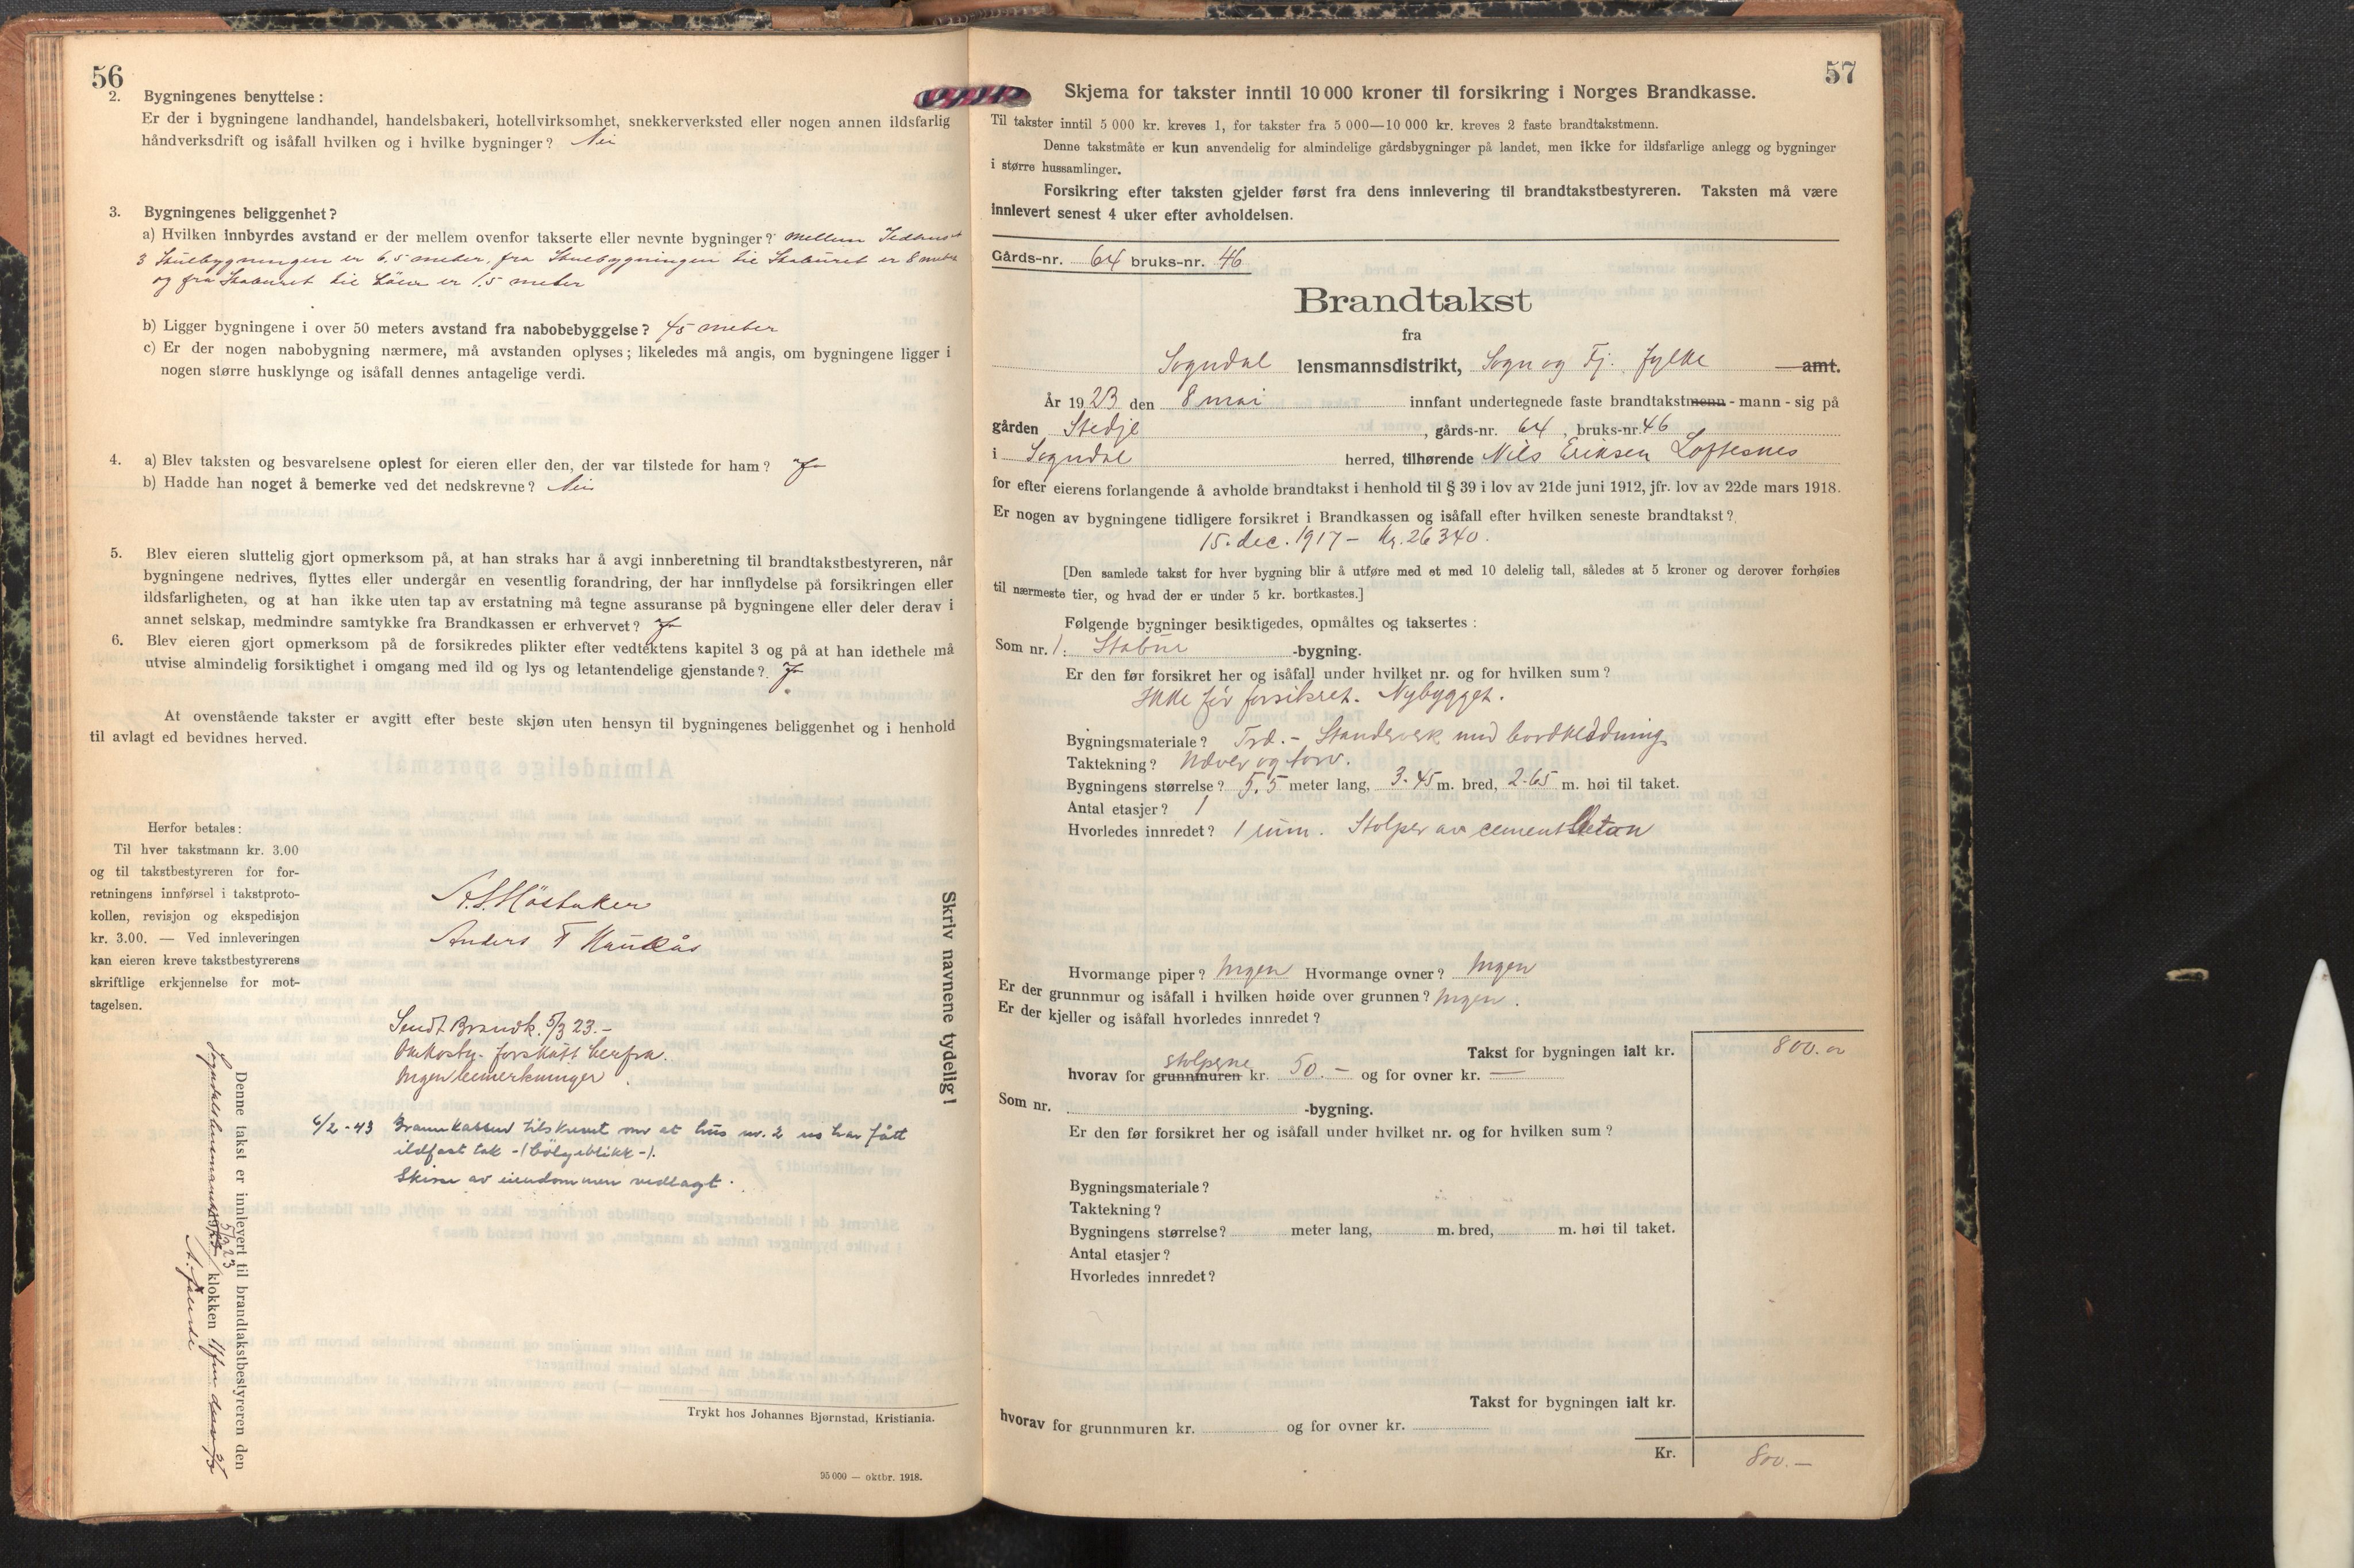 56
2. Bygningenes benyttelse :
Er der i bygningene landhandel, handelsbakeri, hotellvirksomhet, snekkerverksted eller nogen annen ildsfarlig
håndverksdrift og isåfall hvilken og i hvilke bygninger? Nei
3. Bygningenes beliggenhet?
a) Hvilken innbyrdes avstand er der mellem ovenfor takserte eller nevnte bygninger? Mellem Vedhuset
3 Stuebygningen er 6,5 meter, fra Stuebygningen til Staburet er 8 meter
og fra Staburet til Löen er 1.5 meter
b) Ligger bygningene i over 50 meters avstand fra nabobebyggelse? 45 meter
c) Er der nogen nabobygning nærmere, må avstanden oplyses; likeledes må angis, om bygningene ligger i
nogen større husklynge og isåfall dennes antagelige verdi.
4. a) Blev taksten og besvarelsene oplest for eieren eller den, der var tilstede for ham? Ja
b) Hadde han noget å bemerke ved det nedskrevne? Nei
5. Blev eieren sluttelig gjort opmerksom på, at han straks har å avgi innberetning til brandtakstbestyreren, når
bygningene nedrives, flyttes eller undergår en vesentlig forandring, der har innflydelse på forsikringen eller
ildsfarligheten, og at han ikke uten tap av erstatning må tegne assuranse på bygningene eller deler derav i
annet selskap, medmindre samtykke fra Brandkassen er erhvervet? Ja
6. Blev eieren gjort opmerksom på de forsikredes plikter efter vedtektens kapitel 3 og på at han idethele må
utvise almindelig forsiktighet i omgang med ild og lys og letantendelige gjenstande? Ja
At ovenstående takster er avgitt efter beste skjøn uten hensyn til bygningenes beliggenhet og i henhold
til avlagt ed bevidnes herved.
Herfor betales:
Til hver takstmann kr. 3.00
og til takstbestyreren for for-
retningens innførsel i takstproto-
kollen, revisjon og ekspedisjon
kr. 3.00. — Ved innleveringen
kan eieren kreve takstbestyrerens
skriftlige erkjennelse for mot-
tagelsen.
Anders T Haukås
Sendt Brandk. 5/3 23.-
Omkostn. forskutt herfra.
Ingen bemerkninger.
6/2-43 Brannkassen tilskrevet om at hus nr. 2 no har fått
ildfast tak -(bölgeblikk-).
Skisse av eiendommen vedlagt.
Skriv navnene tydelig!
Denne takst er innlevert til brandtakstbestyreren den
5/3 23 klokken
Trykt hos Johannes Bjørnstad, Kristiania.
95 000 — oktbr. 1918.
57
Skjema for takster inntil 10 000 kroner til forsikring i Norges Brandkasse.
Til takster inntil 5 000 kr. kreves 1, for takster fra 5 000—10 000 kr. kreves 2 faste brandtakstmenn.
Denne takstmåte er kun anvendelig for almindelige gårdsbygninger på landet, men ikke for ildsfarlige anlegg og bygninger
i større hussamlinger.
Forsikring efter taksten gjelder først fra dens innlevering til brandtakstbestyreren. Taksten må være
innlevert senest 4 uker efter avholdelsen.
Gårds-nr. 64 bruks-nr. 46
Brandtakst
fra
Sogndal lensmannsdistrikt, Sogn og Fj. fylke amt.
År 1923 den 8 mai innfant undertegnede faste brandtakstmenn - mann - sig på
gården Stedje, gårds-nr. 64, bruks-nr. 46
i Sogndal herred, tilhørende Nils Eriksen Loftesnes
for efter eierens forlangende å avholde brandtakst i henhold til § 39 i lov av 21de juni 1912, jfr. lov av 22de mars 1918.
Er nogen av bygningene tidligere forsikret i Brandkassen og isåfall efter hvilken seneste brandtakst?
15. dec. 1917 – kr. 26340.
[Den samlede takst for hver bygning blir å utføre med et med 10 delelig tall, således at 5 kroner og derover forhøies
til nærmeste tier, og hvad der er under 5 kr. bortkastes.]
Følgende bygninger besiktigedes, opmåltes og taksertes :
Som nr. 1: Stabur -bygning.
Er den før forsikret her og isåfall under hvilket nr. og for hvilken sum?
Ikke før forsikret. Nybygget.
Bygningsmateriale? Træ. – Standerverk med bordklædning
Taktekning? Næver og torv.
Bygningens størrelse? 5.5 meter lang, 3.45 m. bred, 2.65 m. høi til taket.
Antal etasjer? 1
Hvorledes innredet? 1 rum. Stolper av cementbeton
Hvormange piper? Ingen Hvormange ovner? Ingen
Er der grunnmur og isåfall i hvilken høide over grunnen? Ingen.
Er der kjeller og isåfall hvorledes innredet?
Takst for bygningen ialt kr. 800.00
stolpene
hvorav for grunnmuren kr. 50.– og for ovner kr. —
Som nr. -bygning.
Er den før forsikret her og isåfall under hvilket nr. og for hvilken sum?
Bygningsmateriale?
Taktekning?
Bygningens størrelse? meter lang, m. bred, m. høi til taket.
Antal etasjer?
Hvorledes innredet?
Takst for bygningen ialt kr.
hvorav for grunnmuren kr. og for ovner kr.
Kr. 800.—